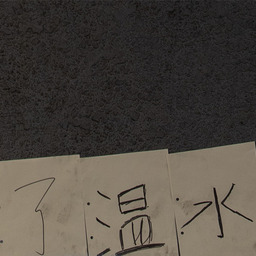 了温水